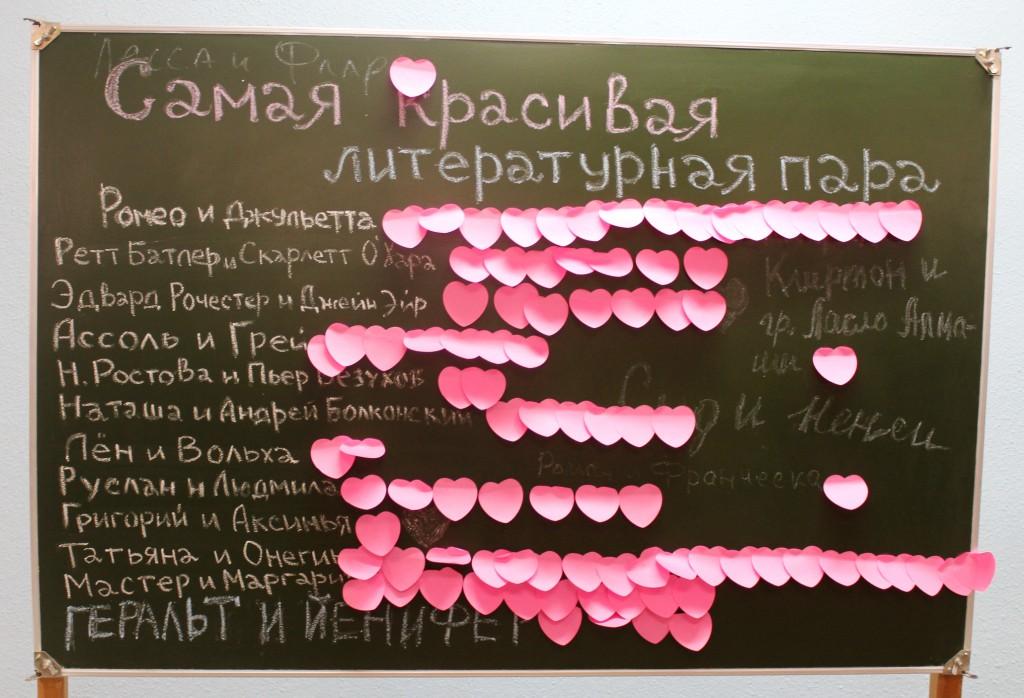 Ласса и Флар
Самая красивая
литературная пара
Ромео и Джульетта
Ретт Батлер и Скарлетт О'Хара
Эдвард Рочестер и Джейн Эйр
Ассоль и Грей
Н. Ростова и Пьер Безухов
Наташа и Андрей Болконский
Лён и Вольха
Руслан и Людмила
Григорий и Аксинья
Татьяна и Онегин
Мастер и Маргари
ГЕРАЛЬТ И ЙЕНИФЕР
и
гр. Ласло Алма-
ши
и Ненси
и Франческа